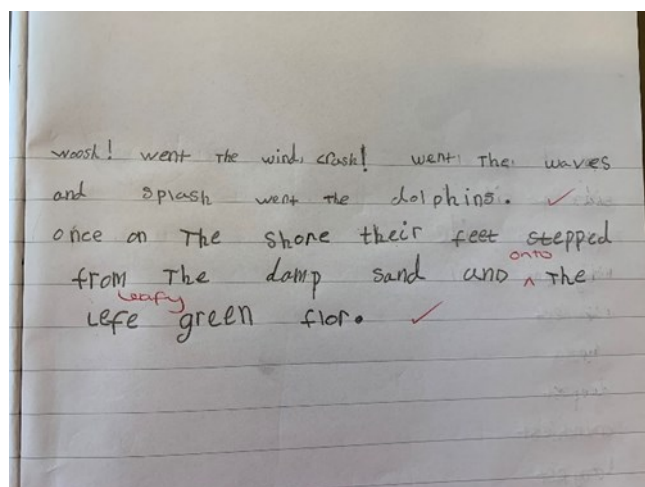 woosh! went The wind, crash! went The waves
and splash went the dolphins. ✓
once on The shore their feet stepped
onto
from The damp sand and ^ The
leafy
Lefe green flor. ✓